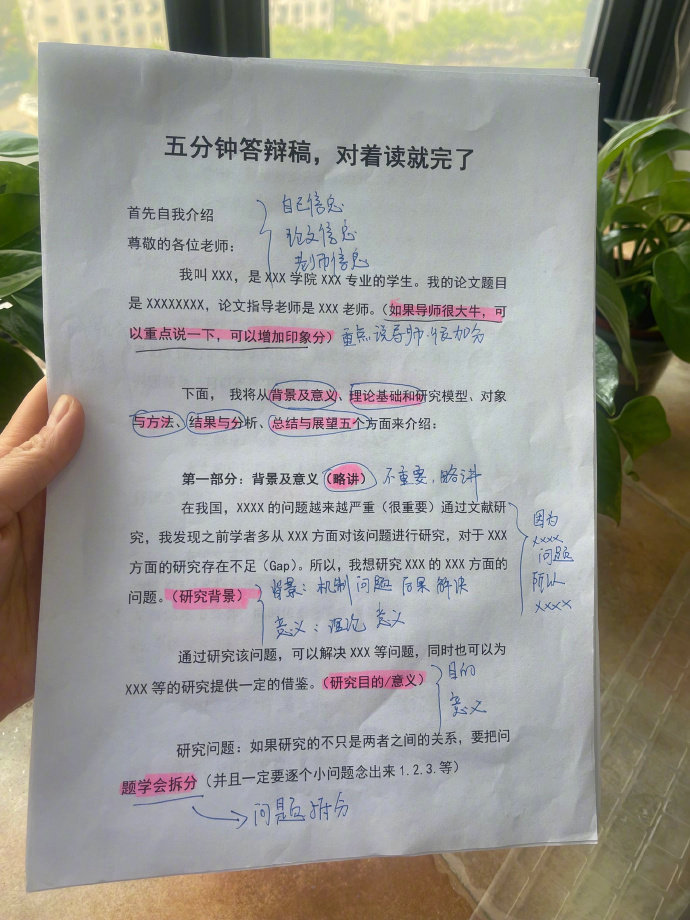 五分钟答辩稿，对着读就完了
首先自我介绍
自己信息
尊敬的各位老师：
论文信息
老师信息
我叫 XXX，是 XXX 学院 XXX 专业的学生。我的论文题目
是 XXXXXXXX，论文指导老师是 XXX 老师。（如果导师很大牛，可
以重点说一下，可以增加印象分）重点说导师.很加分
下面， 我将从背景及意义、理论基础和研究模型、对象
与方法、结果与分析、总结与展望五个方面来介绍：
第一部分：背景及意义（略讲）不重要.略讲
在我国，XXXX 的问题越来越严重（很重要）通过文献研
究，我发现之前学者多从 XXX 方面对该问题进行研究，对于 XXX
方面的研究存在不足（Gap）。所以，我想研究 XXX 的 XXX 方面的
问题。（研究背景）背景：机制 问题 后果 解决
意义：理论 意义
因为
xxxx
问题
所以
xxxx
通过研究该问题，可以解决 XXX 等问题，同时也可以为
XXX 等的研究提供一定的借鉴。（研究目的/意义）
目的
意义
研究问题：如果研究的不只是两者之间的关系，要把问
题学会拆分（并且一定要逐个小问题念出来 1.2.3.等）
问题拆分